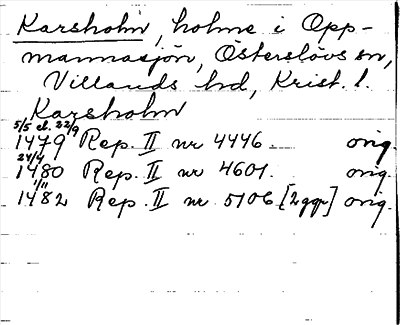 Karsholm, holme i Opp-
mannasjön, Österslövs sn,
Villands hd, Krist. l.
Karsholm
5/5 el. 22/9
1479 Rep. II nr 4446 orig.
24/4
1480 Rep. II nr 4601. orig.
1/11
1482 Rep. II nr 5106 [2ggr] orig.